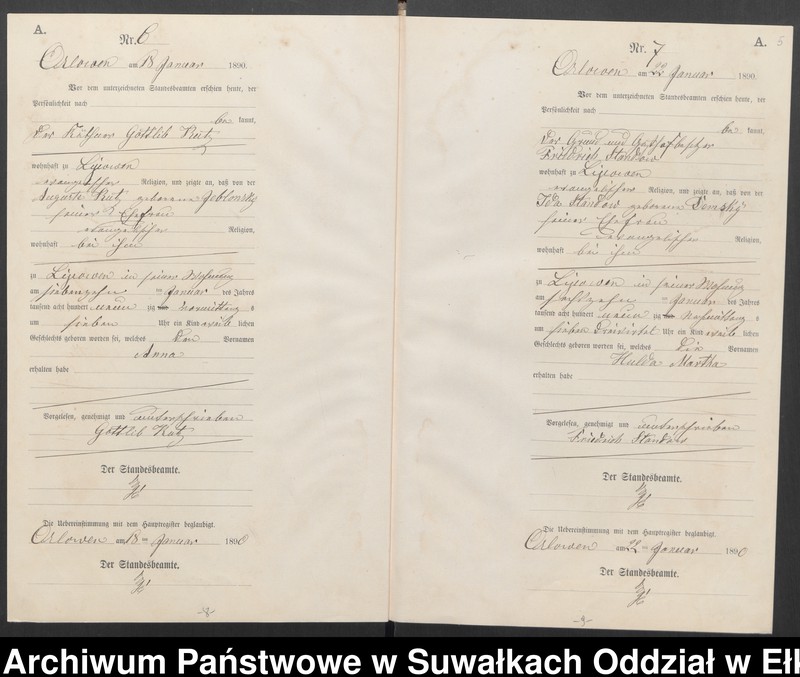 A.
Nr. 6
Orlowen am 18 Januar 1890.
Vor dem unterzeichneten Standesbeamten erschien heute, der
Persönlichkeit nach
be kannt,
der Käthner Gottlib Kutz
wohnhaft zu Lipowen
evangelischer Religion, und zeigte an, daß von der
Auguste Kutz geborene Jeblonsky
seiner Ehefrau
evangelischer Religion,
wohnhaft bei ihm
zu Lipowen in seiner Wohnung
am siebenzehn ten Januar des Jahres
tausend acht hundert neun zig und Vormittag s
um sieben Uhr ein Kind weib lichen
Geschlechts geboren worden sei, welches den Vornamen
Anna
erhalten habe
Vorgelesen, genehmigt und unterschrieben
Gottlib Kutz
Der Standesbeamte.
Die Uebereinstimmung mit dem Hauptregister beglaubigt.
Orlowen am 18 ten Januar 1890
Der Standesbeamte.
-8-
A. 5
Nr. 7
Orlowen am 22 Januar 1890.
Vor dem unterzeichneten Standesbeamten erschien heute, der
Persönlichkeit nach
be kannt,
der Grund und
Friedrich Standow
wohnhaft zu Lipowen
evangelischer Religion, und zeigte an, daß von der
Ida Standow geborene Demsky
seiner Ehefrau
evangelischer Religion,
wohnhaft bei ihm
zu Lipowen in seiner Wohnung
am sechszehn ten Januar des Jahres
tausend acht hundert neun zig und Nachmittag s
um sieben Uhr ein Kind weib lichen
Geschlechts geboren worden sei, welches die Vornamen
Hulda Martha
erhalten habe
Vorgelesen, genehmigt und unterschrieben
Friedrich Standow
Der Standesbeamte.
Die Uebereinstimmung mit dem Hauptregister beglaubigt.
Orlowen am 22 ten Januar 1890
Der Standesbeamte.
-9-
Archiwum Państwowe w Suwałkach Oddział w Ełk